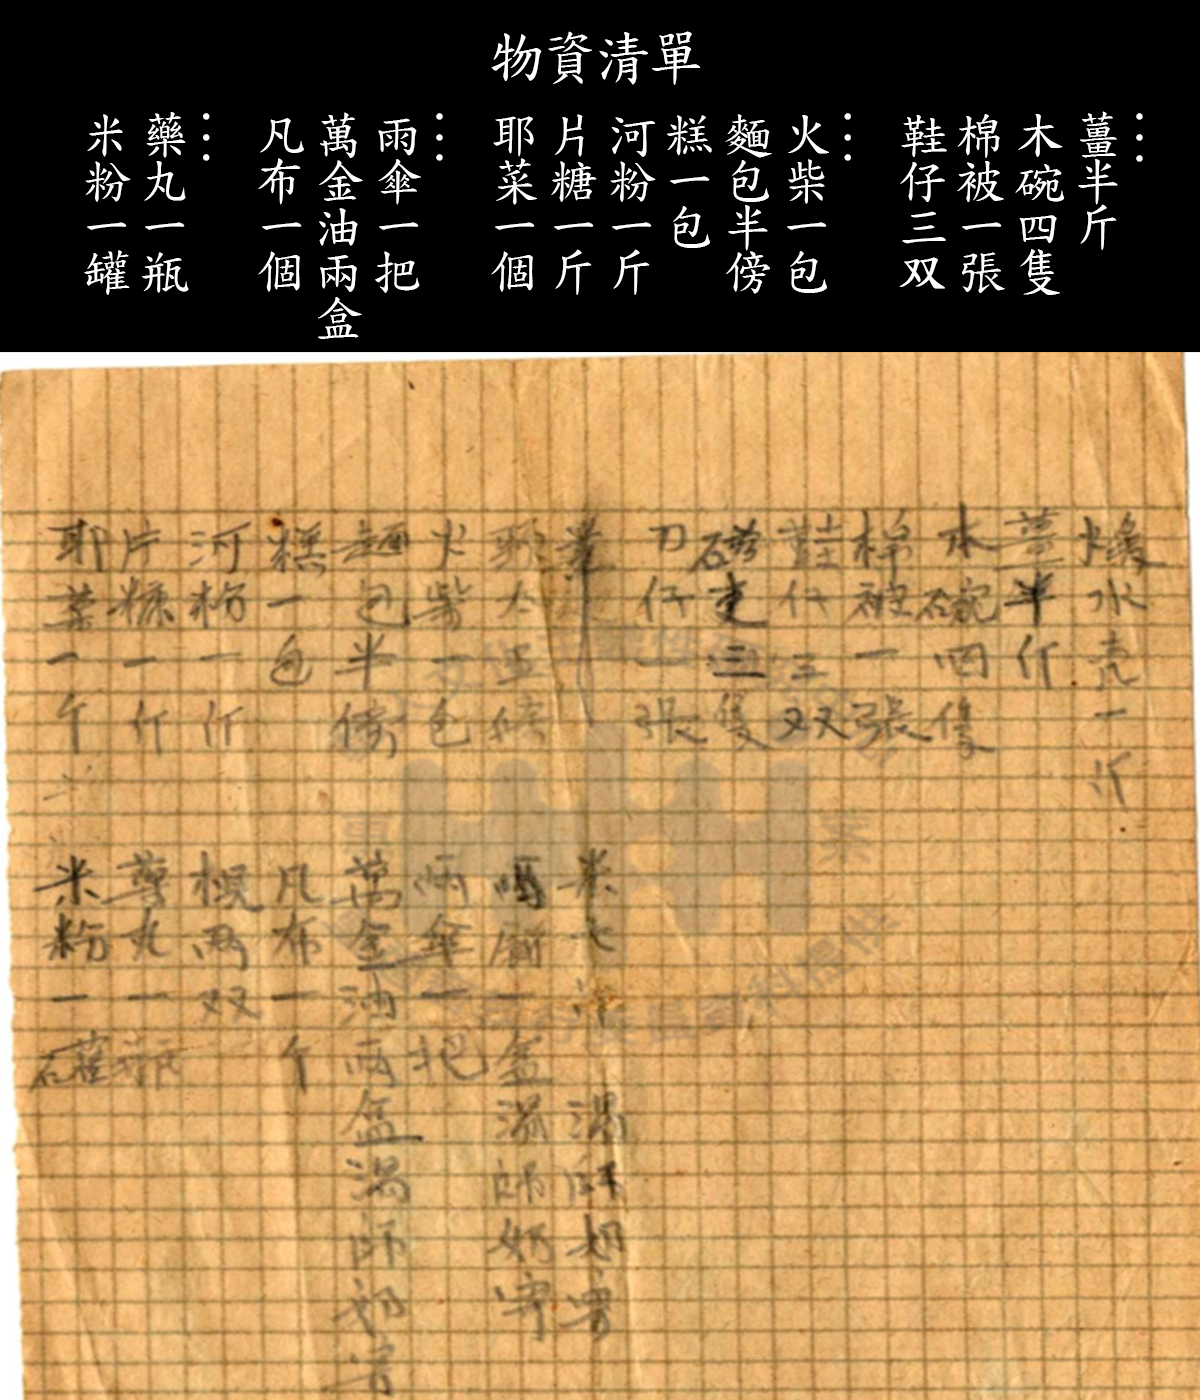 物資清單
⋮
薑半斤
木碗四隻
棉被一張
鞋仔三双
⋮
火柴一包
麵包半傍
糕一包
河粉一斤
片糖一斤
耶菜一個
⋮
雨傘一把
萬金油兩盒
凡布一個
⋮
藥丸一瓶
米粉一罐
水壳一斤
薑半斤
木碗四隻
棉被一張
鞋仔三双
三隻
刀仔一張
火柴一包
麵包半傍
糕一包
河粉一斤
片糖一斤
耶菜一个
米
一盒
師奶寄
雨傘一把
萬金油兩盒
師奶
凡布一个
兩双
丸一瓶
米粉一